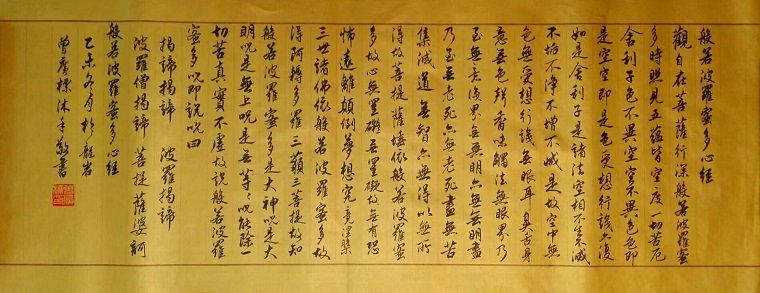 般若波羅蜜多心經
觀自在菩薩行深般若波羅蜜
多時照見五蘊皆空度一切苦厄
舍利子色不異空空不異色色即
是空空即是色受想行識亦復
如是舍利子是諸法空相不生不滅
不垢不淨不增不減是故空中無
色無受想行識無眼耳鼻舌身
意無色聲香味觸法無眼界乃
至無意識界無無明亦無無明盡
乃至無老死亦無老死盡無苦
集滅道無智亦無得以無所
得故菩提薩埵依般若波羅蜜
多故心無罣礙無罣礙故無有恐
怖遠離顛倒夢想究竟涅槃
三世諸佛依般若波羅蜜多故
得阿耨多羅三藐三菩提故知
般若波羅蜜多是大神咒是大
明咒是無上咒是無等々咒能除一
切苦真實不虛故說般若波羅
蜜多咒即說咒曰
揭諦揭諦 波羅揭諦
波羅僧揭諦 菩提薩婆訶
般若波羅蜜多心經
乙未冬月於龍岩
曾沐手敬書